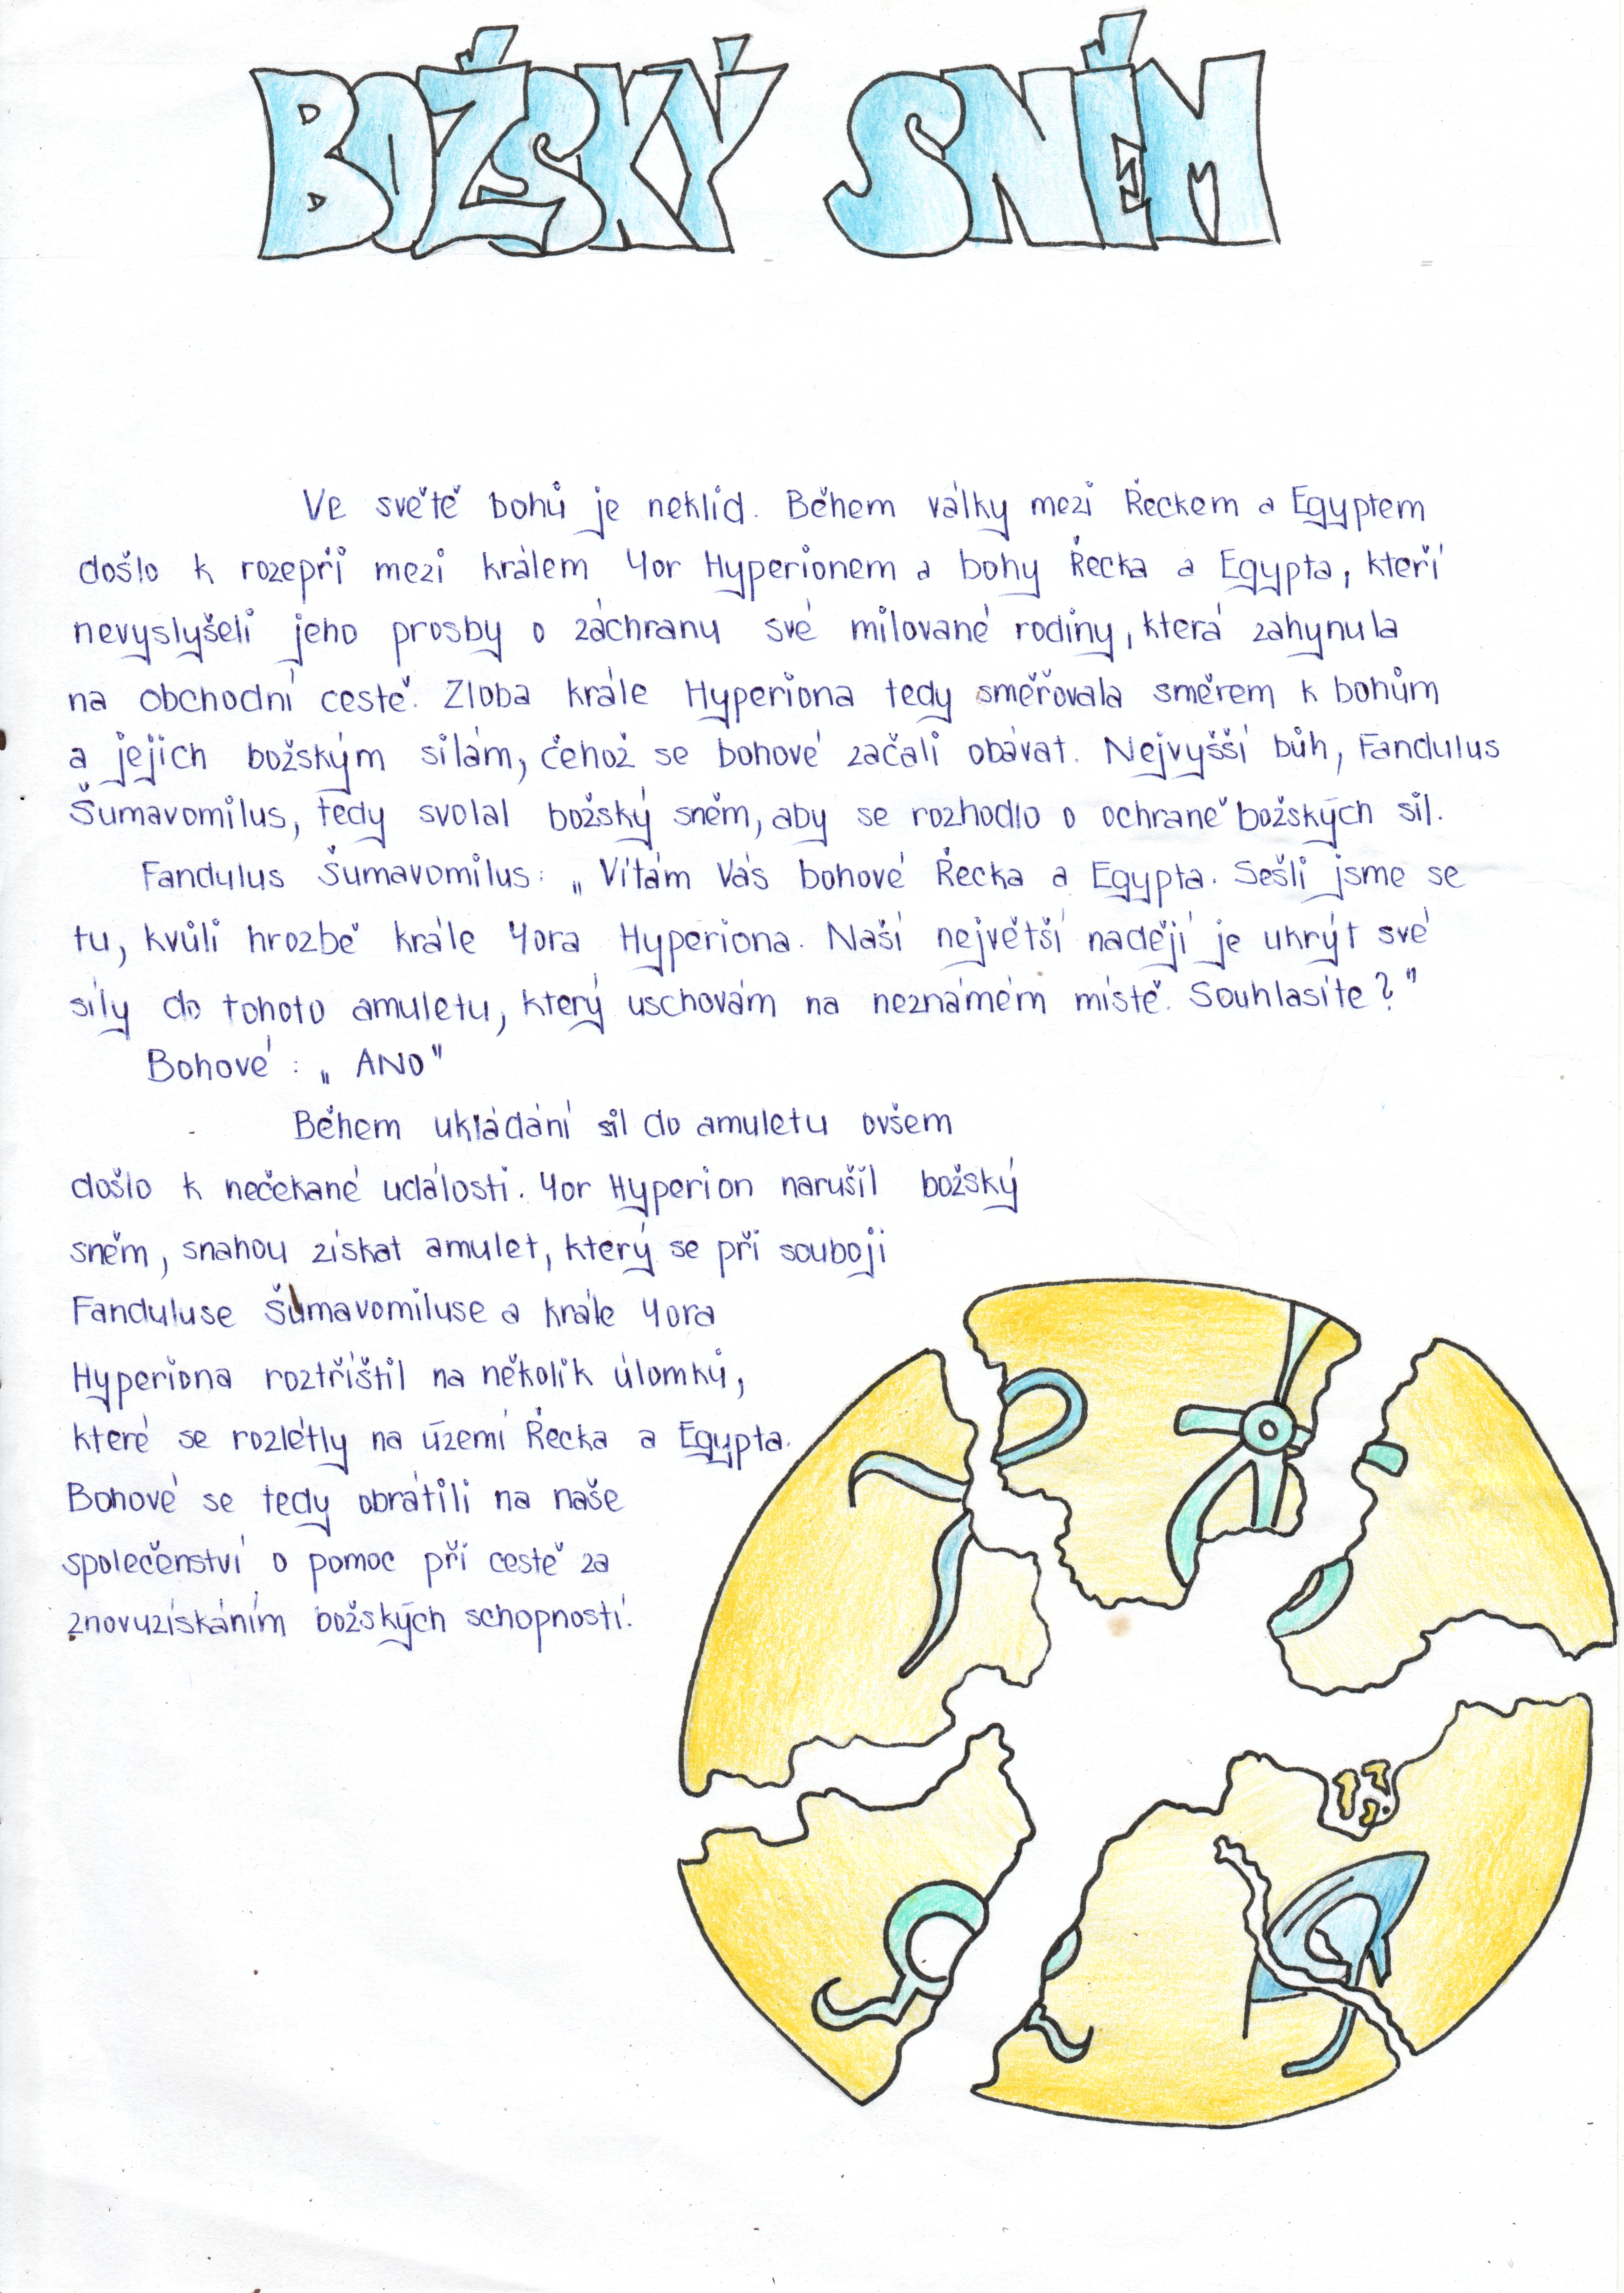 BOŽSKÝ SNĚM
Ve světě bohů je neklid. Během války mezi Řeckem a Egyptem
došlo k rozepři mezi králem Yor Hyperionem a bohy Řecka a Egypta, kteří
nevyslyšeli jeho prosby o záchranu své milované rodiny, která zahynula
na obchodní cestě. Zloba krále Hyperiona tedy směřovala směrem k bohům
a jejich božským silám, čehož se bohové začali obávat. Nejvyšší bůh, Fandulus
Šumavomilus, tedy svolal božský sněm, aby se rozhodlo o ochraně božských sil.
Fandulus Šumavomilus: „Vítám Vás bohové Řecka a Egypta. Sešli jsme se
tu, kvůli hrozbě krále Yora Hyperiona. Naší největší nadějí je ukrýt své
síly do tohoto amuletu, který uschovám na neznámém místě. Souhlasíte?"
Bohové: „ANO"
Během ukládání sil do amuletu ovšem
došlo k nečekané události. Yor Hyperion narušil božský
sněm, snahou získat amulet, který se při souboji
Fanduluse Šumavomiluse a krále Yora
Hyperiona roztříštil na několik úlomků,
které se rozlétly na území Řecka a Egypta.
Bohové se tedy obrátili na naše
společenství o pomoc při cestě za
znovuzískáním božských schopností.